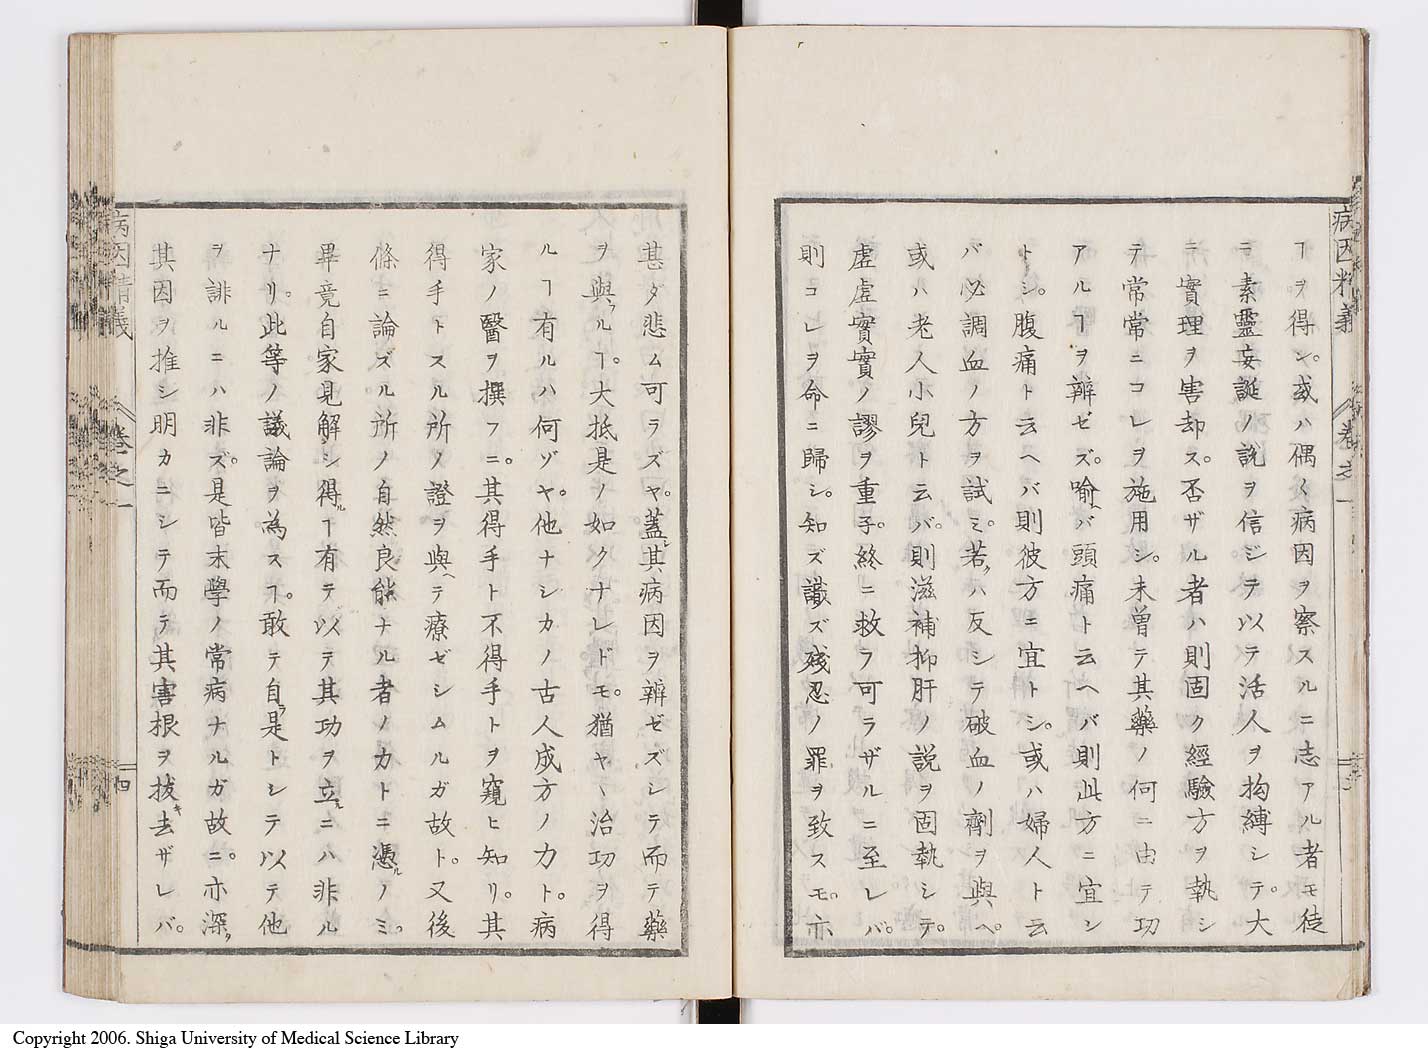 病因精義
卷之一
ヿヲ得ン。或ハ偶〱病因ヲ察スルニ志アル者モ徒
ニ素靈妄誕ノ説ヲ信ジヲ以テ活人ヲ拘縛シテ。大
ニ實理ヲ害却ス。否ザル者ハ則固ク經驗方ヲ執シ
テ常常ニコレヲ施用シ。未曾テ其藥ノ何ニ由テ功
アルヿヲ辨ゼズ。喻ヘバ頭痛ト云ヘバ則此方ニ宜シ
トシ。腹痛ト云ヘバ則彼方ニ宜トシ。或ハ婦人ト云
バ必調血ノ方ヲ試ミ。若クハ反シテ破血ノ劑ヲ與ヘ。
或ハ老人小兒ト云バ。則滋補抑肝ノ説ヲ固執シテ。
虛虛實實ノ謬ヲ重子。終ニ救ラ可ラザルニ至レバ。
則コレヲ命ニ歸シ。知ズ識ズ殘忍ノ罪ヲ致スモ。亦
甚ダ悲ム可ラズヤ。蓋シ其病因ヲ辨ゼズシテ而テ藥
ヲ與フルヿ。大抵是ノ如クナレドモ。猶ヤヽ治功ヲ得
ルヿ有ルハ何ゾヤ。他ナシカノ古人成方ノ力ト。病
家ノ醫ヲ撰フニ。其得手ト不得手トヲ窺ヒ知リ。其
得手トスル所ノ證ヲ與ヘテ療ゼシムルガ故ト。又後
條ニ論ズル所ノ自然良能ナル者ノ力トニ憑ルノミ。
畢竟自家見解シ得ルヿ有テ以テ其功ヲ立ルニハ非ル
ナリ。此等ノ議論ヲ為スヿ。敢テ自ラ是トシテ以テ他
ヲ誹ルニハ非ズ。是皆末學ノ常病ナルガ故ニ。亦深ク
其因ヲ推シ明カニシテ而テ其害根ヲ拔キ去ザレバ。
病因精義
卷之一
四
Copyright 2006. Shiga University of Medical Science Library